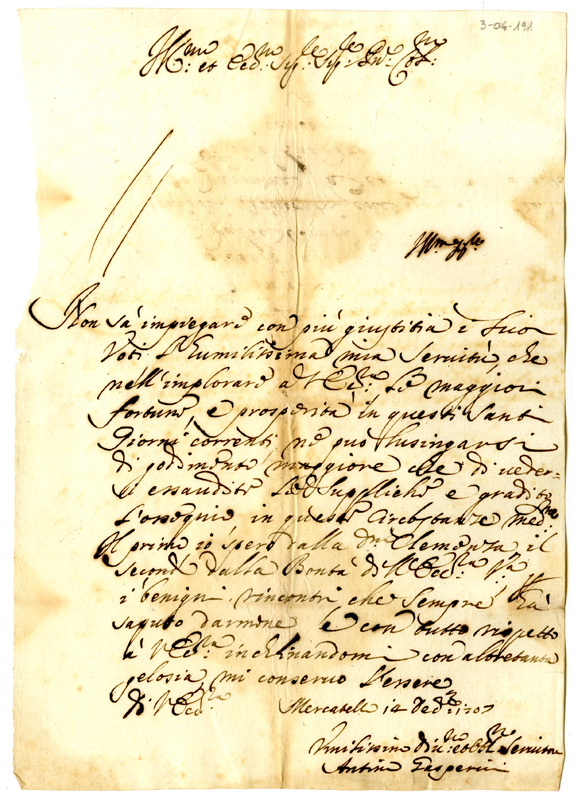 3-06-191
Ill.mo et Ecc.mo Sig.re Sig.re Pne. Col.mo
Non sà impiegare con più giustitia i suoi
voti l'humilissima mia servitù, che
nell'implorare a V Ecc.za le maggiori
fortune, e prosperità in questi santi
Giorni correnti ne può lusingarsi
di godimento maggiore che di veder-
si essaudite le suppliche e gradito
l'ossequio in queste circostanze med.me
Il primo io spero dalla dna Clemenza il
secondo dalla Bontà di V Ecc.za
i benigni rincontri che sempre hà
saputo darmene e con tutto rispetto
à V Ecc.za inchinandomi con altretanta
gelosia mi conservo l'essere
di V Ecc.za Mercatello 14 Dec.re 1707
Humilissimo Di.mo et obbl.mo Servitore
Gasperini